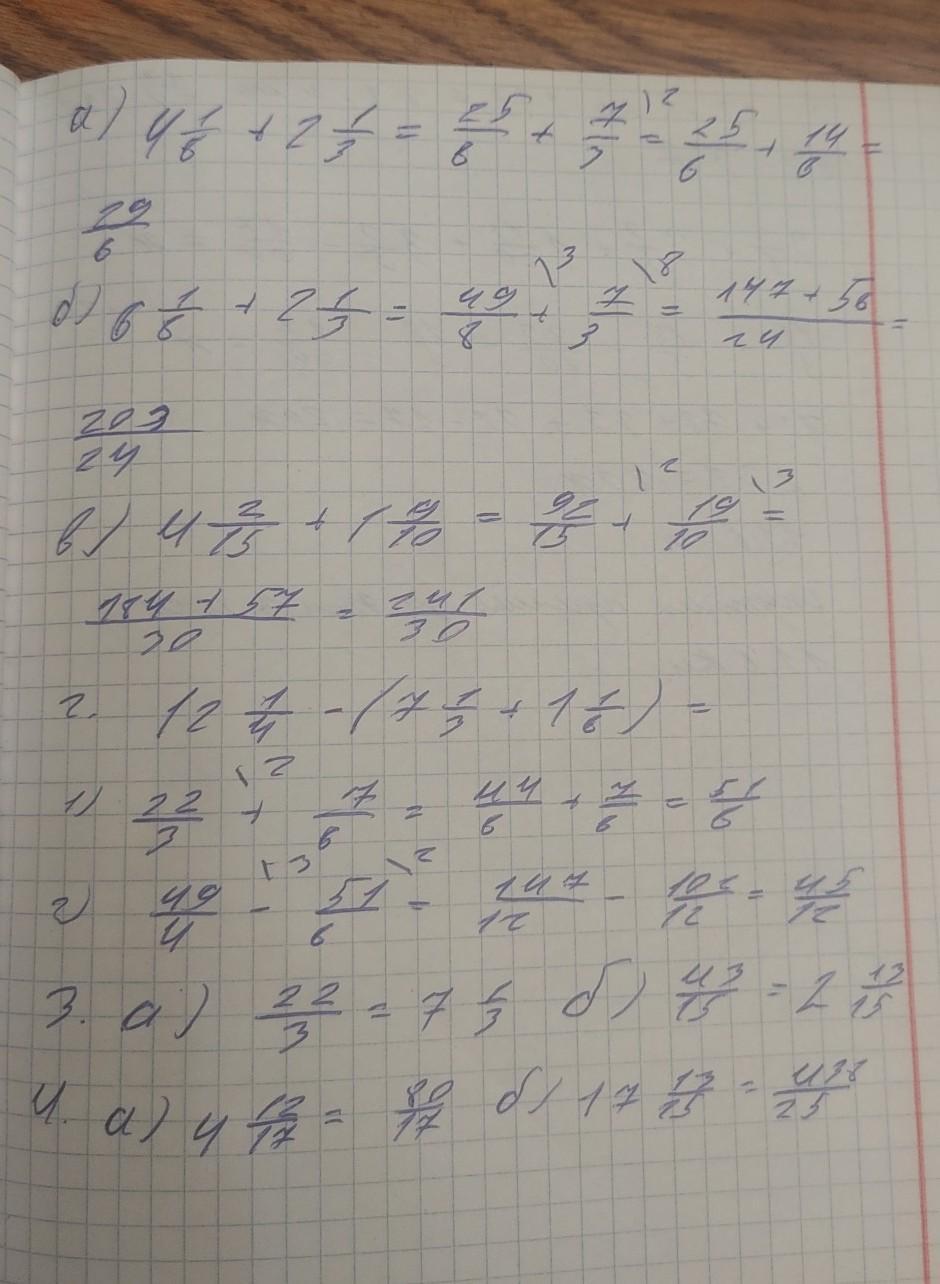 а) 4 1/6 + 2 1/3 = 25/6 + 7/3 \2 = 25/6 + 14/6 =
29/6
б) 6 1/8 + 2 1/3 = 49/8 \3 + 7/3 \8 = 147 + 56/24 =
203/24
в) 4 2/15 + 1 9/10 = 92/15 \2 + 19/10 \3 =
184 + 57/30 = 241/30
г. 12 1/4 - (7 1/3 + 1 1/6) =
1) 22/3 \2 + 7/6 = 44/6 + 7/6 = 51/6
2) 49/4 \3 - 51/6 \2 = 147/12 - 102/12 = 45/12
3. а) 22/3 = 7 1/3 б) 43/15 = 2 13/15
4. а) 4 12/17 = 80/17 б) 17 13/25 = 438/25